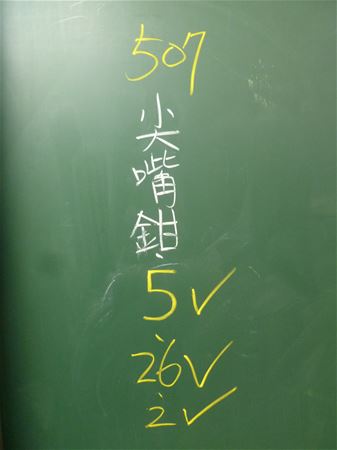 507
尖嘴鉗
5✓
26✓
2✓